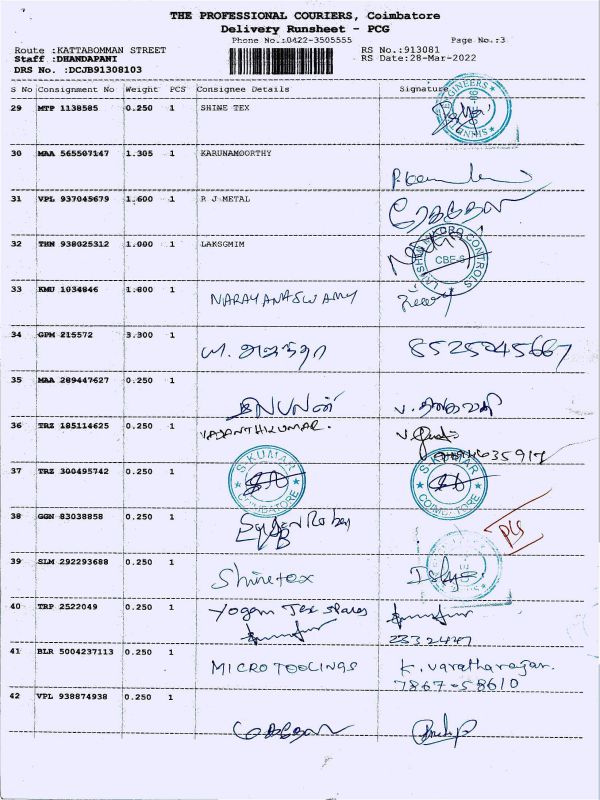 THE PROFESSIONAL COURIERS, Coimbatore
Delivery Runsheet - PCG
Phone No.:0422-3505555
Page No.:3
Route :KATTABOMMAN STREET
RS No.:913081
Staff :DHANDAPANI
RS Date:28-Mar-2022
DRS No. :DCJB91308103
S No Consignment No Weight PCS Consignee Details Signature
29 MTP 1138585 0.250 1 SHINE TEX
30 MAA 565507147 1.305 1 KARUNAMOORTHY
31 VPL 937045679 1.600 1 R J METAL
32 THN 938025312 1.000 1 LAKSGMIM
CBE-6
33 KMU 1034846 1.800 1 NARAYANASWAMY
34 GPM 215572 3.300 1 8525045667
35 MAA 289447627 0.250 1
36 TRZ 185114625 0.250 1 VASANTHIKUMAR.
37 TRZ 300495742 0.250 1 S.KUMAR COIMBATORE S.KUMAR COIMBATORE
38 GGN 83038858 0.250 1
39 SLM 292293688 0.250 1 Shinetex
40 TRP 2522049 0.250 1 Yogam Tex
2332447
41 BLR 5004237113 0.250 1 MICRO TOOLINGS K. Varatharajan.
7867-58610
42 VPL 938874938 0.250 1